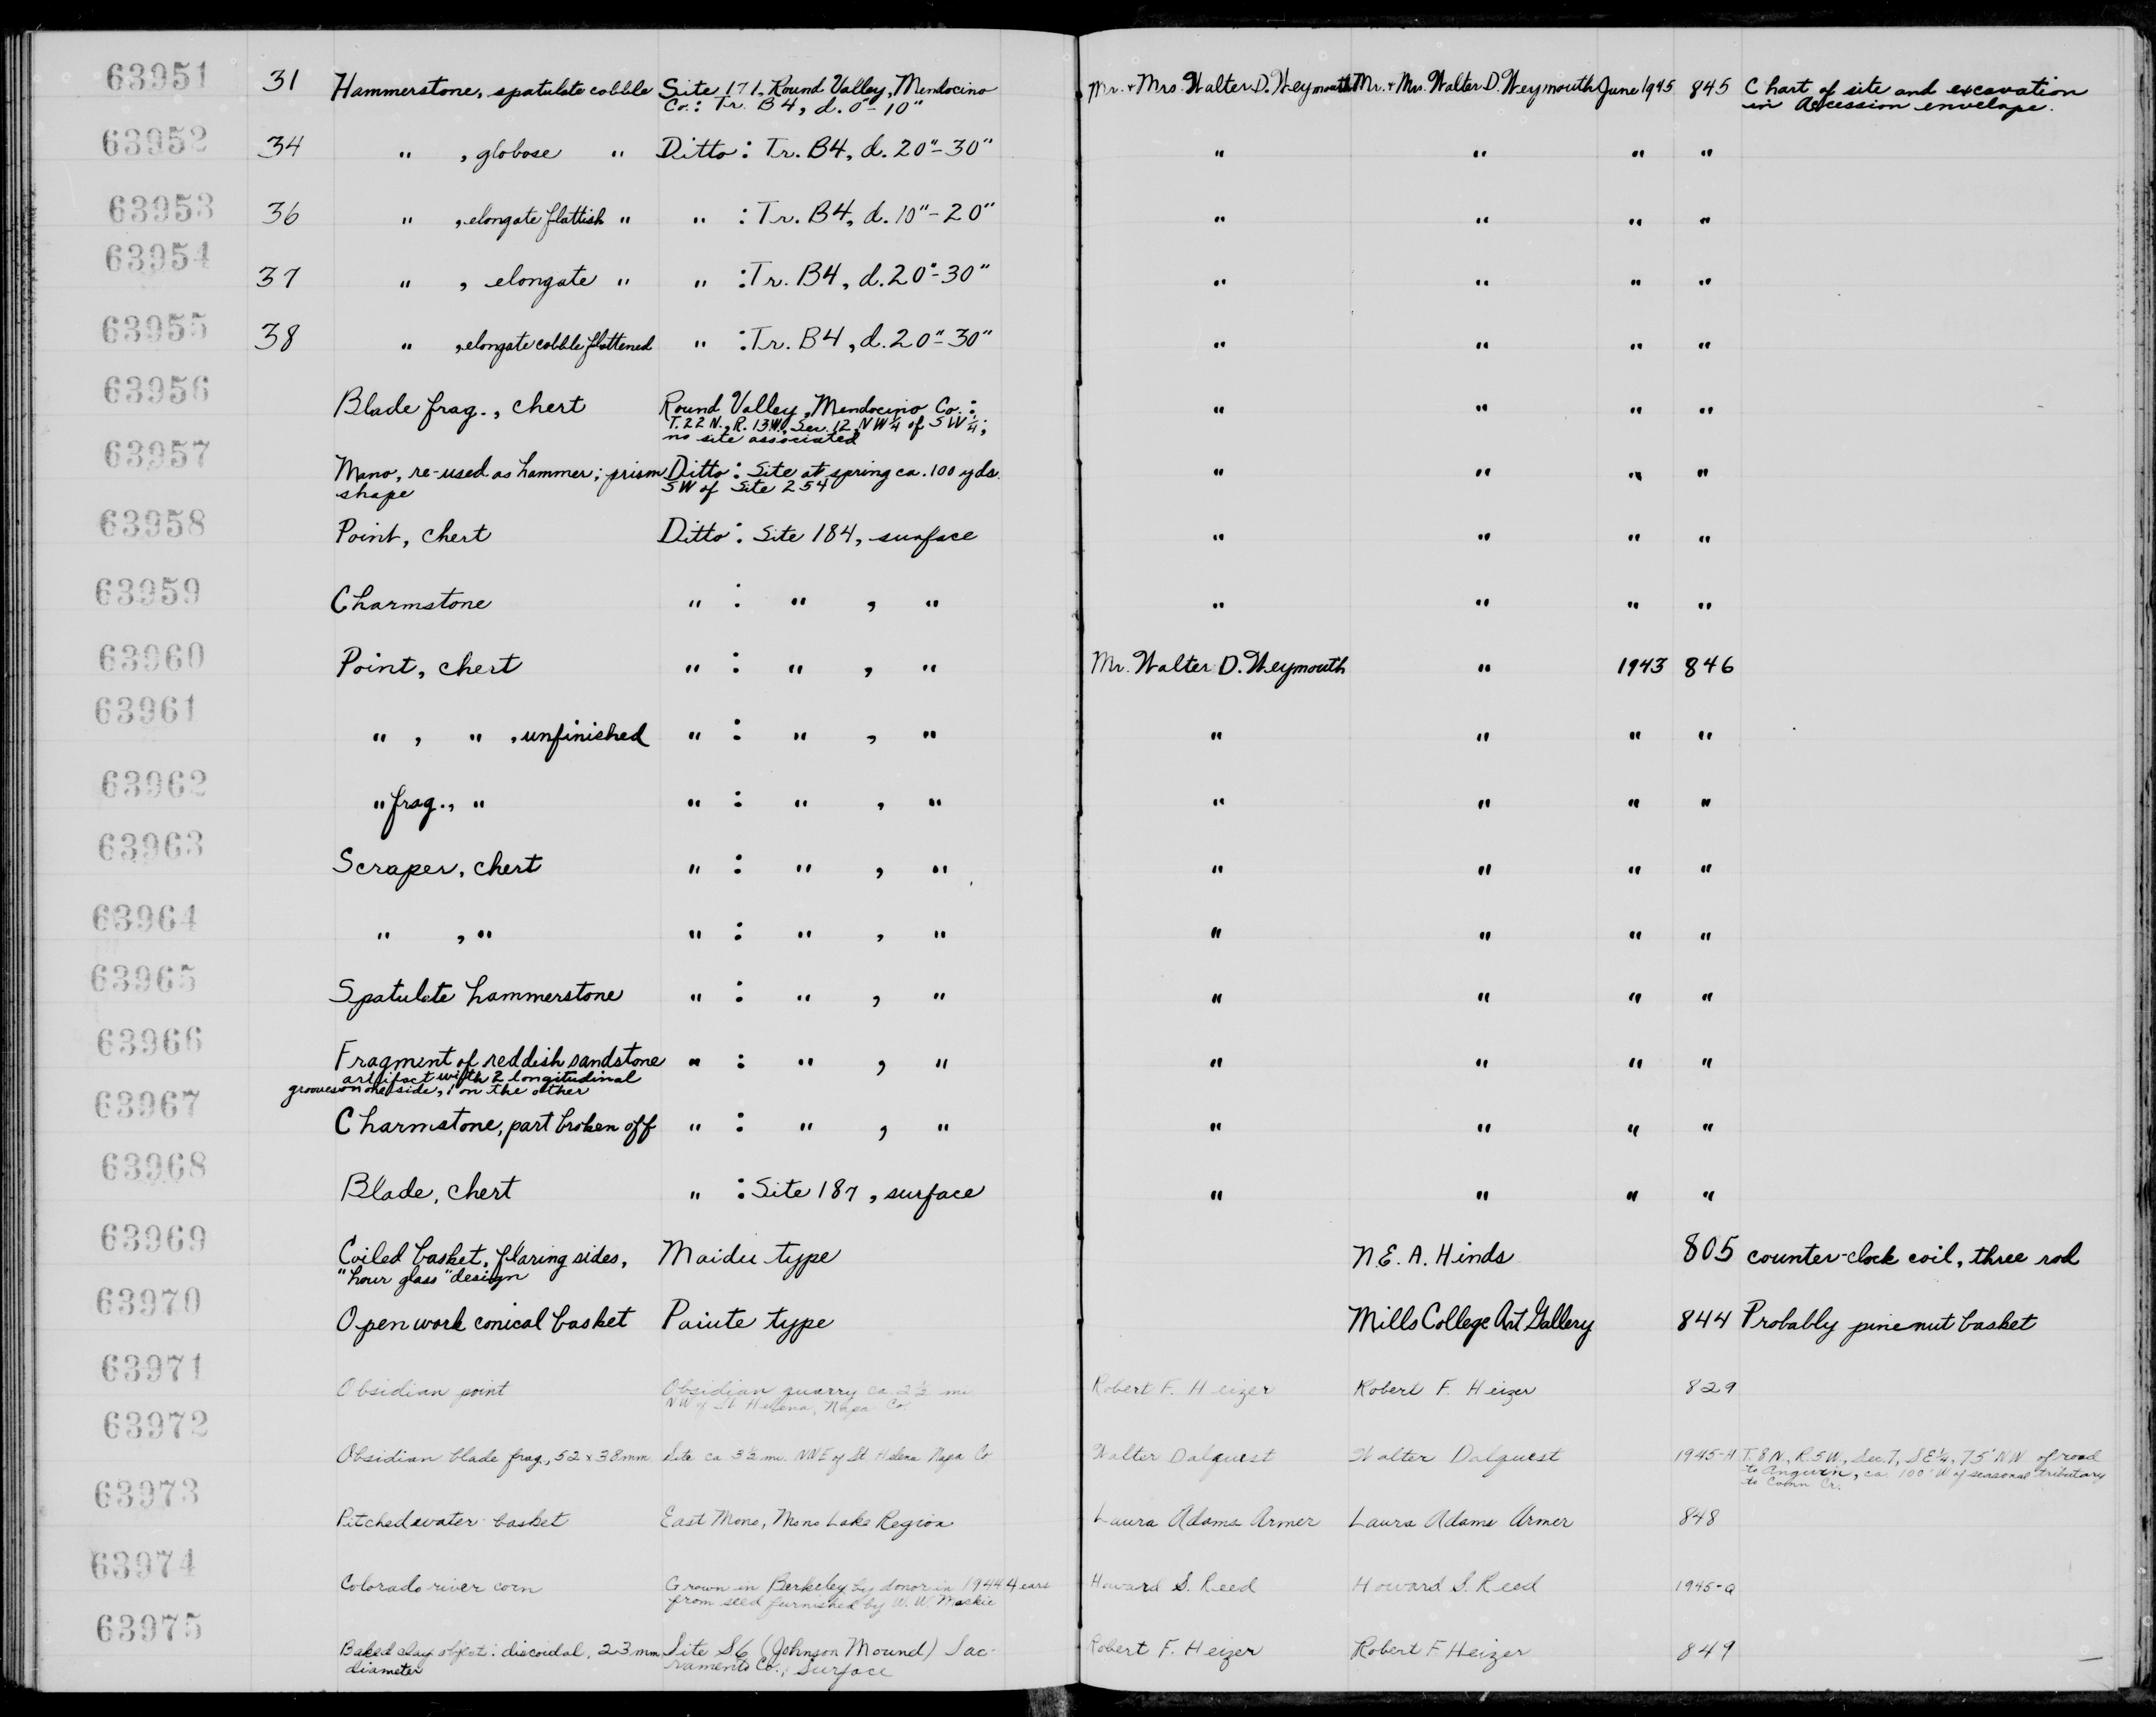 63951 31 Hammerstone, spatulate cobble Site 171, Round Valley, Mendocino Mr. + Mrs. Walter D. Weymouth Mr. + Mrs. Walter D. Weymouth June 1945 845 Chart of site and excavation
Co.: Tr. B4, d. 0"-10" in Accession envelope.
63952 34 " , globose " Ditto: Tr. B4, d. 20"-30" " " " "
63953 36 " , elongate flattish " " : Tr. B4, d. 10"-20" " " " "
63954 37 " , elongate " " : Tr. B4, d. 20"-30" " " " "
63955 38 " , elongate cobble flattened " : Tr. B4, d. 20"-30" " " " "
63956 Blade frag., chert Round Valley, Mendocino Co.: " " " "
T. 22 N., R. 13 W., Sec. 12, NW ¼ of SW ¼;
no site associated
63957 Mano, re-used as hammer; prism Ditto: Site at spring ca. 100 yds. " " " "
shape SW of Site 254
63958 Point, chert Ditto: Site 184, surface " " " "
63959 Charmstone " : " , " " " " "
63960 Point, chert " : " , " Mr. Walter D. Weymouth " 1943 846
63961 " , " , unfinished " : " , " " " " "
63962 " frag., " " : " , " " " " "
63963 Scraper, chert " : " , " " " " "
63964 " , " " : " , " " " " "
63965 Spatulate hammerstone " : " , " " " " "
63966 Fragment of reddish sandstone " : " , " " " " "
artifact with 2 longitudinal
grooves on one side, 1 on the other
63967 Charmstone, part broken off " : " , " " " " "
63968 Blade, chert " : Site 187, surface " " " "
63969 Coiled basket, flaring sides, Maidu type N. E. A. Hinds 805 counter-clock coil, three rod
"hour glass" design
63970 Open work conical basket Paiute type Mills College Art Gallery 844 Probably pinenut basket
63971 Obsidian point Obsidian quarry ca. 2½ mi Robert F. Heizer Robert F. Heizer 829
NW of St. Helena, Napa Co.
63972 Obsidian blade frag., 52 x 38 mm Site ca 3½ mi. NNE of St Helena Napa Co Walter Dalquest Walter Dalquest 1945-H T. 8 N, R 5 W, Sec. 7, SE ¼, 75' NW of road
to Angwin, ca 100' W of seasonal tributary
to Conn Cr.
63973 Pitched water basket East Mono, Mono Lake Region Laura Adams Armer Laura Adams Armer 848
63974 Colorado river corn Grown in Berkeley by donor in 1944 4 ears Howard S. Reed Howard S. Reed 1945-Q
from seed furnished by W. W. Mackie
63975 Baked clay object: discoidal, 23 mm Site S6 (Johnson Mound) Sac- Robert F. Heizer Robert F Heizer 849
diameter ramento Co., Surface